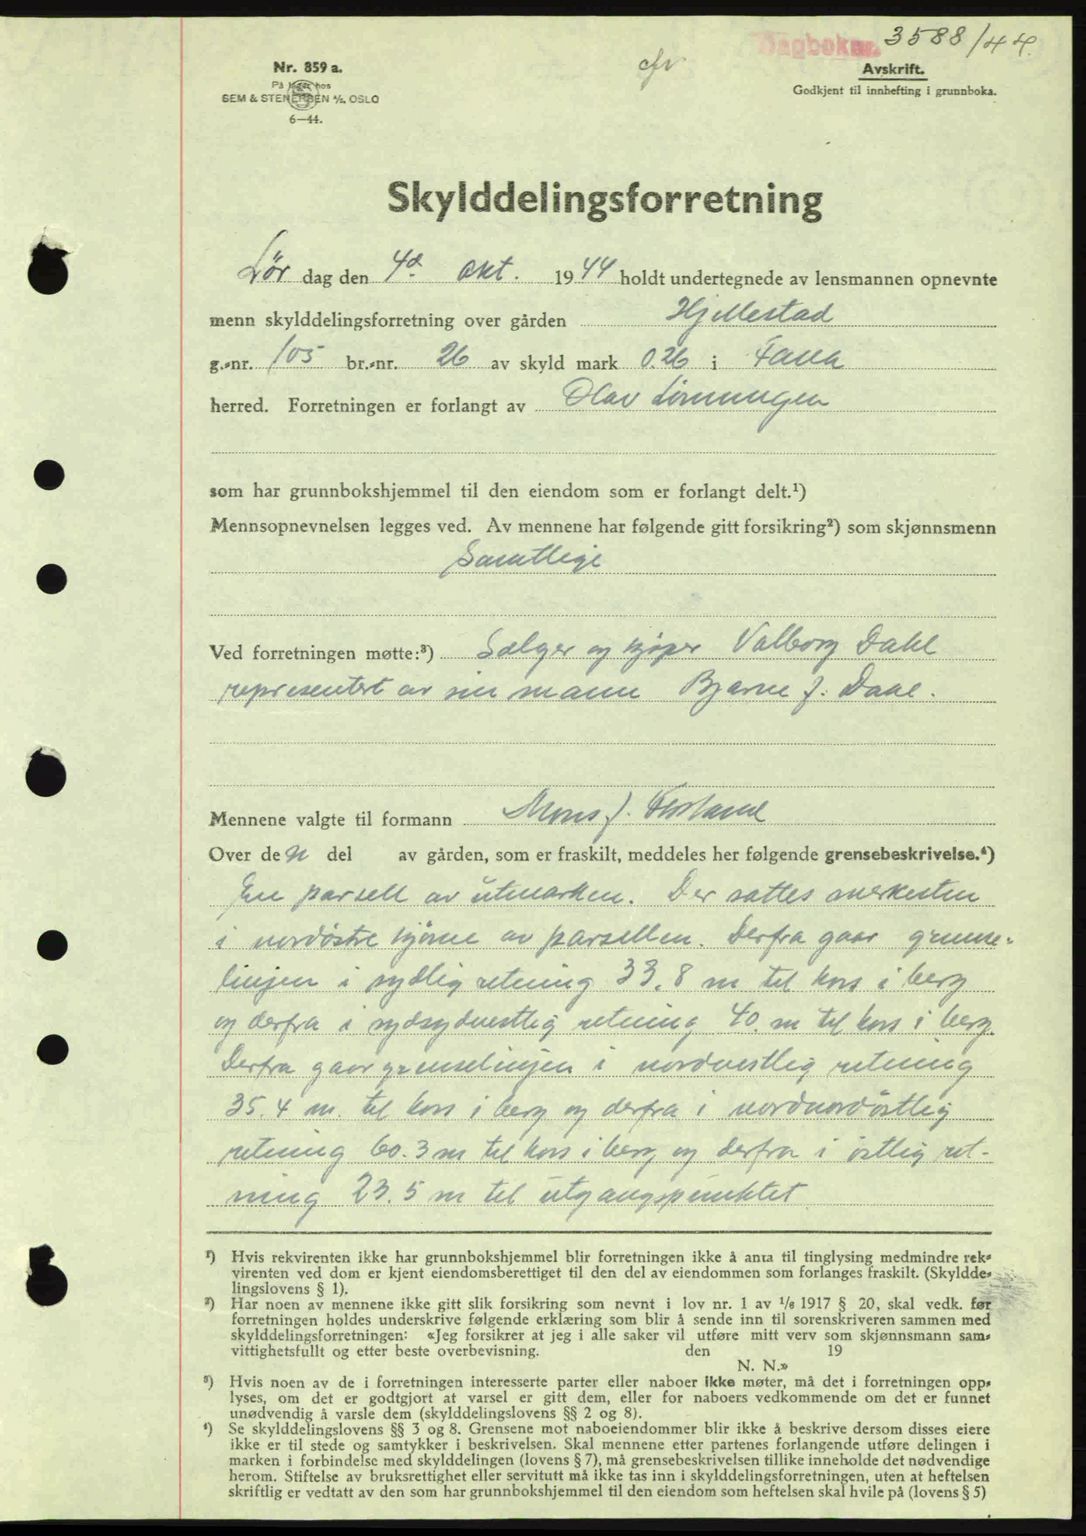 Dagboknr. 3588/44
Nr. 859 a.
På lager hos
SEM & STENERSEN A/S, OSLO
6—44.
Avskrift.
Godkjent til innhefting i grunnboka.
Skylddelingsforretning
Lör dag den 4d. okt. 1944 holdt undertegnede av lensmannen opnevnte
menn skylddelingsforretning over gården Hjellestad
g.-nr. 105 br.-nr. 26 av skyld mark 0.26 i Fana
herred. Forretningen er forlangt av Olav Lönningen
som har grunnbokshjemmel til den eiendom som er forlangt delt.¹)
Mennsopnevnelsen legges ved. Av mennene har følgende gitt forsikring²) som skjønnsmenn
Samtlige
Ved forretningen møtte:³) Sælger og kjöper Valborg Dahl
representert av sin mann Bjarne J. Daae.
Mennene valgte til formann Mons J.
Over den del av gården, som er fraskilt, meddeles her følgende grensebeskrivelse.⁴)
En parsell av utmarken. Der sattes merkesten
i nordöstre hjörne av parsellen. Derfra gaar grense-
linjen i sydlig retning 33.8 m til kors i berg
og derfra i sydsydvestlig retning 40. m til kors i berg.
Derfra gaar grenselinjen i nordvestlig retning
35.4 m. til kors i berg og derfra i nordnordöstlig
retning 60.3 m til kors i berg og derfra i östlig ret-
ning 23.5 m til utgangspunktet
¹) Hvis rekvirenten ikke har grunnbokshjemmel blir forretningen ikke å anta til tinglysing medmindre rek-
virenten ved dom er kjent eiendomsberettiget til den del av eiendommen som forlanges fraskilt. (Skyldde-
lingslovens § 1).
²) Har noen av mennene ikke gitt slik forsikring som nevnt i lov nr. 1 av 1/6 1917 § 20, skal vedk. før
forretningen holdes underskrive følgende erklæring som blir å sende inn til sorenskriveren sammen med
skylddelingsforretningen: «Jeg forsikrer at jeg i alle saker vil utføre mitt verv som skjønnsmann sam-
vittighetsfullt og etter beste overbevisning. den 19
N. N.»
³) Hvis noen av de i forretningen interesserte parter eller naboer ikke møter, må det i forretningen opp-
lyses, om det er godtgjort at varsel er gitt dem, eller for naboers vedkommende om det er funnet
unødvendig å varsle dem (skylddelingslovens §§ 2 og 8).
⁴) Se skylddelingslovens §§ 3 og 8. Grensene mot naboeiendommer blir ikke å beskrive dersom disses eiere
ikke er til stede og samtykker i beskrivelsen. Skal mennene etter partenes forlangende utføre delingen i
marken i forbindelse med skylddelingen (lovens § 7), må grensebeskrivelsen tillike inneholde det nødvendige
herom. Stiftelse av bruksrettighet eller servitutt må ikke tas inn i skylddelingsforretningen, uten at heftelsen
skriftlig er vedtatt av den som har grunnbokshjemmel til den eiendom som heftelsen skal hvile på (lovens § 5)